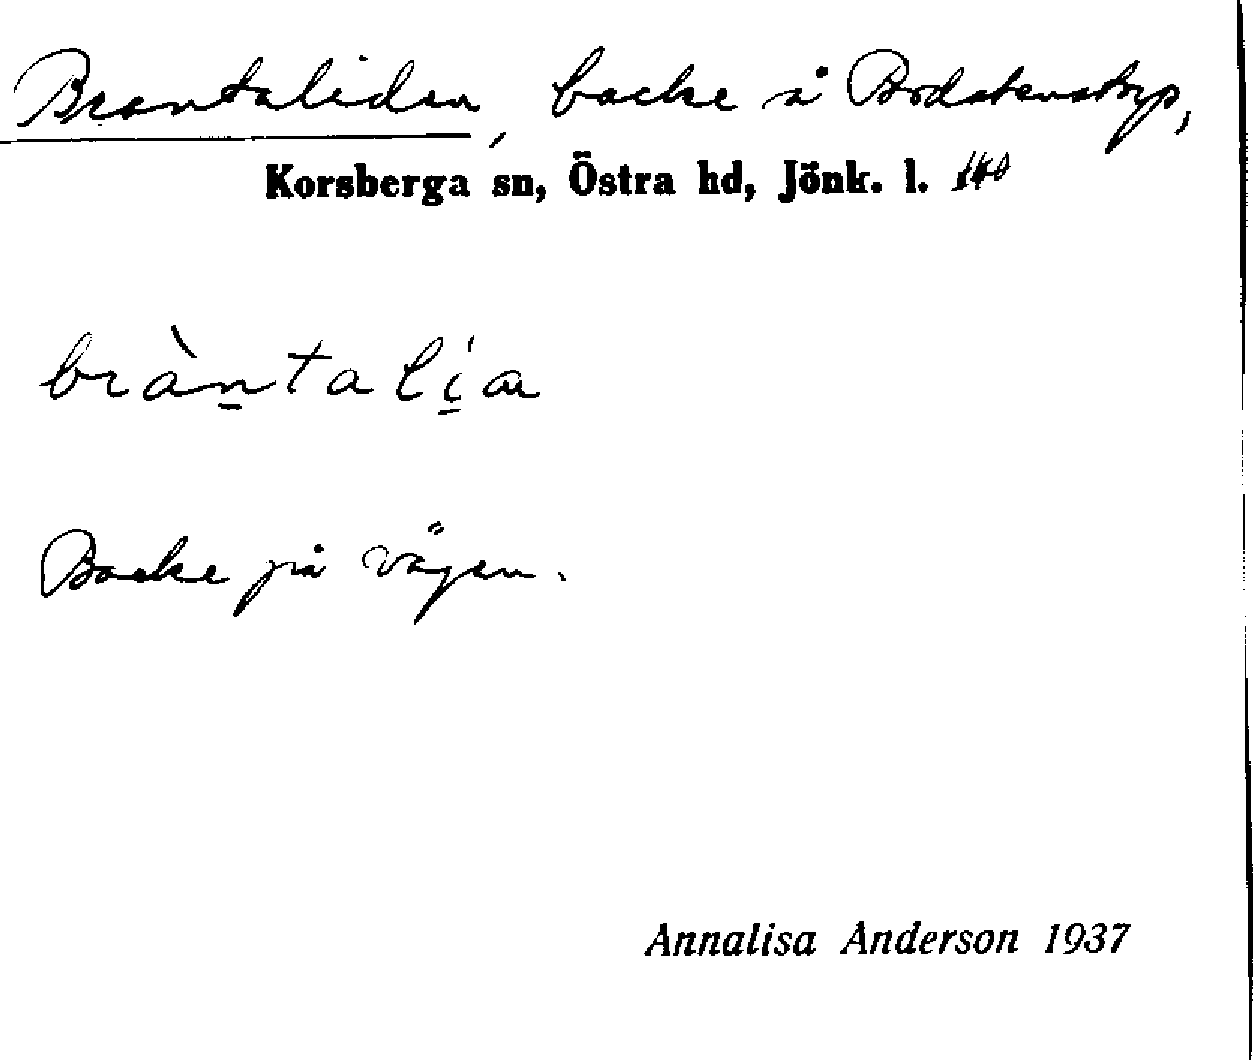 Brantaliden, backe å Bodstenstorp,
Korsberga sn, Östra hd, Jönk. l. 140
bràntalía
Backe på vägen.
Annalisa Anderson 1937